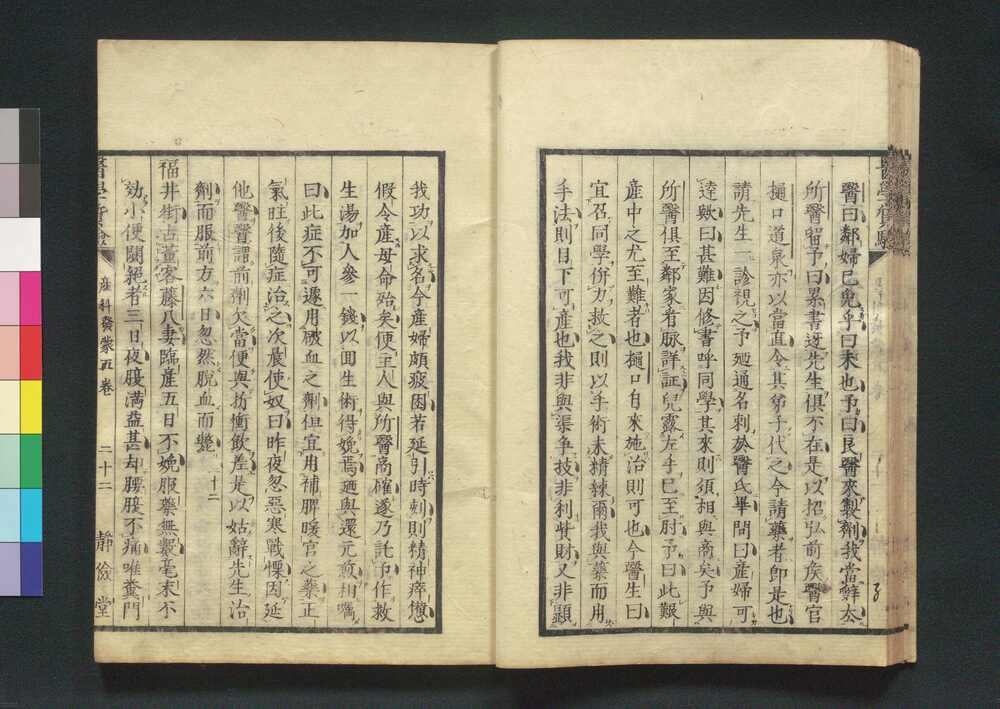 醫曰鄰婦已免乎曰未也予曰良醫來製劑我當辭去
所醫留予曰累書迓先生俱不在是以招弘前矦醫官
樋口道泉亦以當直令其弟子代之今請藥者即是也
請先生一診視之予廼通名刺於醫氏畢問曰産婦可
達歟曰甚難因修書呼同學其來則須相與商矣予與
所醫俱至鄰家看脉詳証兒露左手已至肘予曰此艱
産中之尤至難者也樋口自來施治則可也今醫生曰
宜召同學併力救之則以手術未精練爾我與藥而用
手法則目下可産也我非與渠争技非利貲財又非顯
我功以求名今産婦頗疲困若延引時刺則精神瘁憊
假令産母命殆矣使主人與所醫商確遂乃託予作救
生湯加入參一錢以回生術得娩焉廼與還元煎相嘱
曰此症不可遽用破血之劑但宜用補脾暖宮之藥正
氣旺後隨症治之次晨使奴曰昨夜忽惡寒戰慄因延
他醫醫謂前劑欠當便與折衝飲差是以姑辭先生治
劑而服前方六日忽然脫血而斃
福井街古董客藤八妻臨産五日不娩服藥無毫末
効小便閉絕者三日夜腹満益甚却腰腹不痛唯糞門
産科發蒙五卷
二十二
靜儉堂